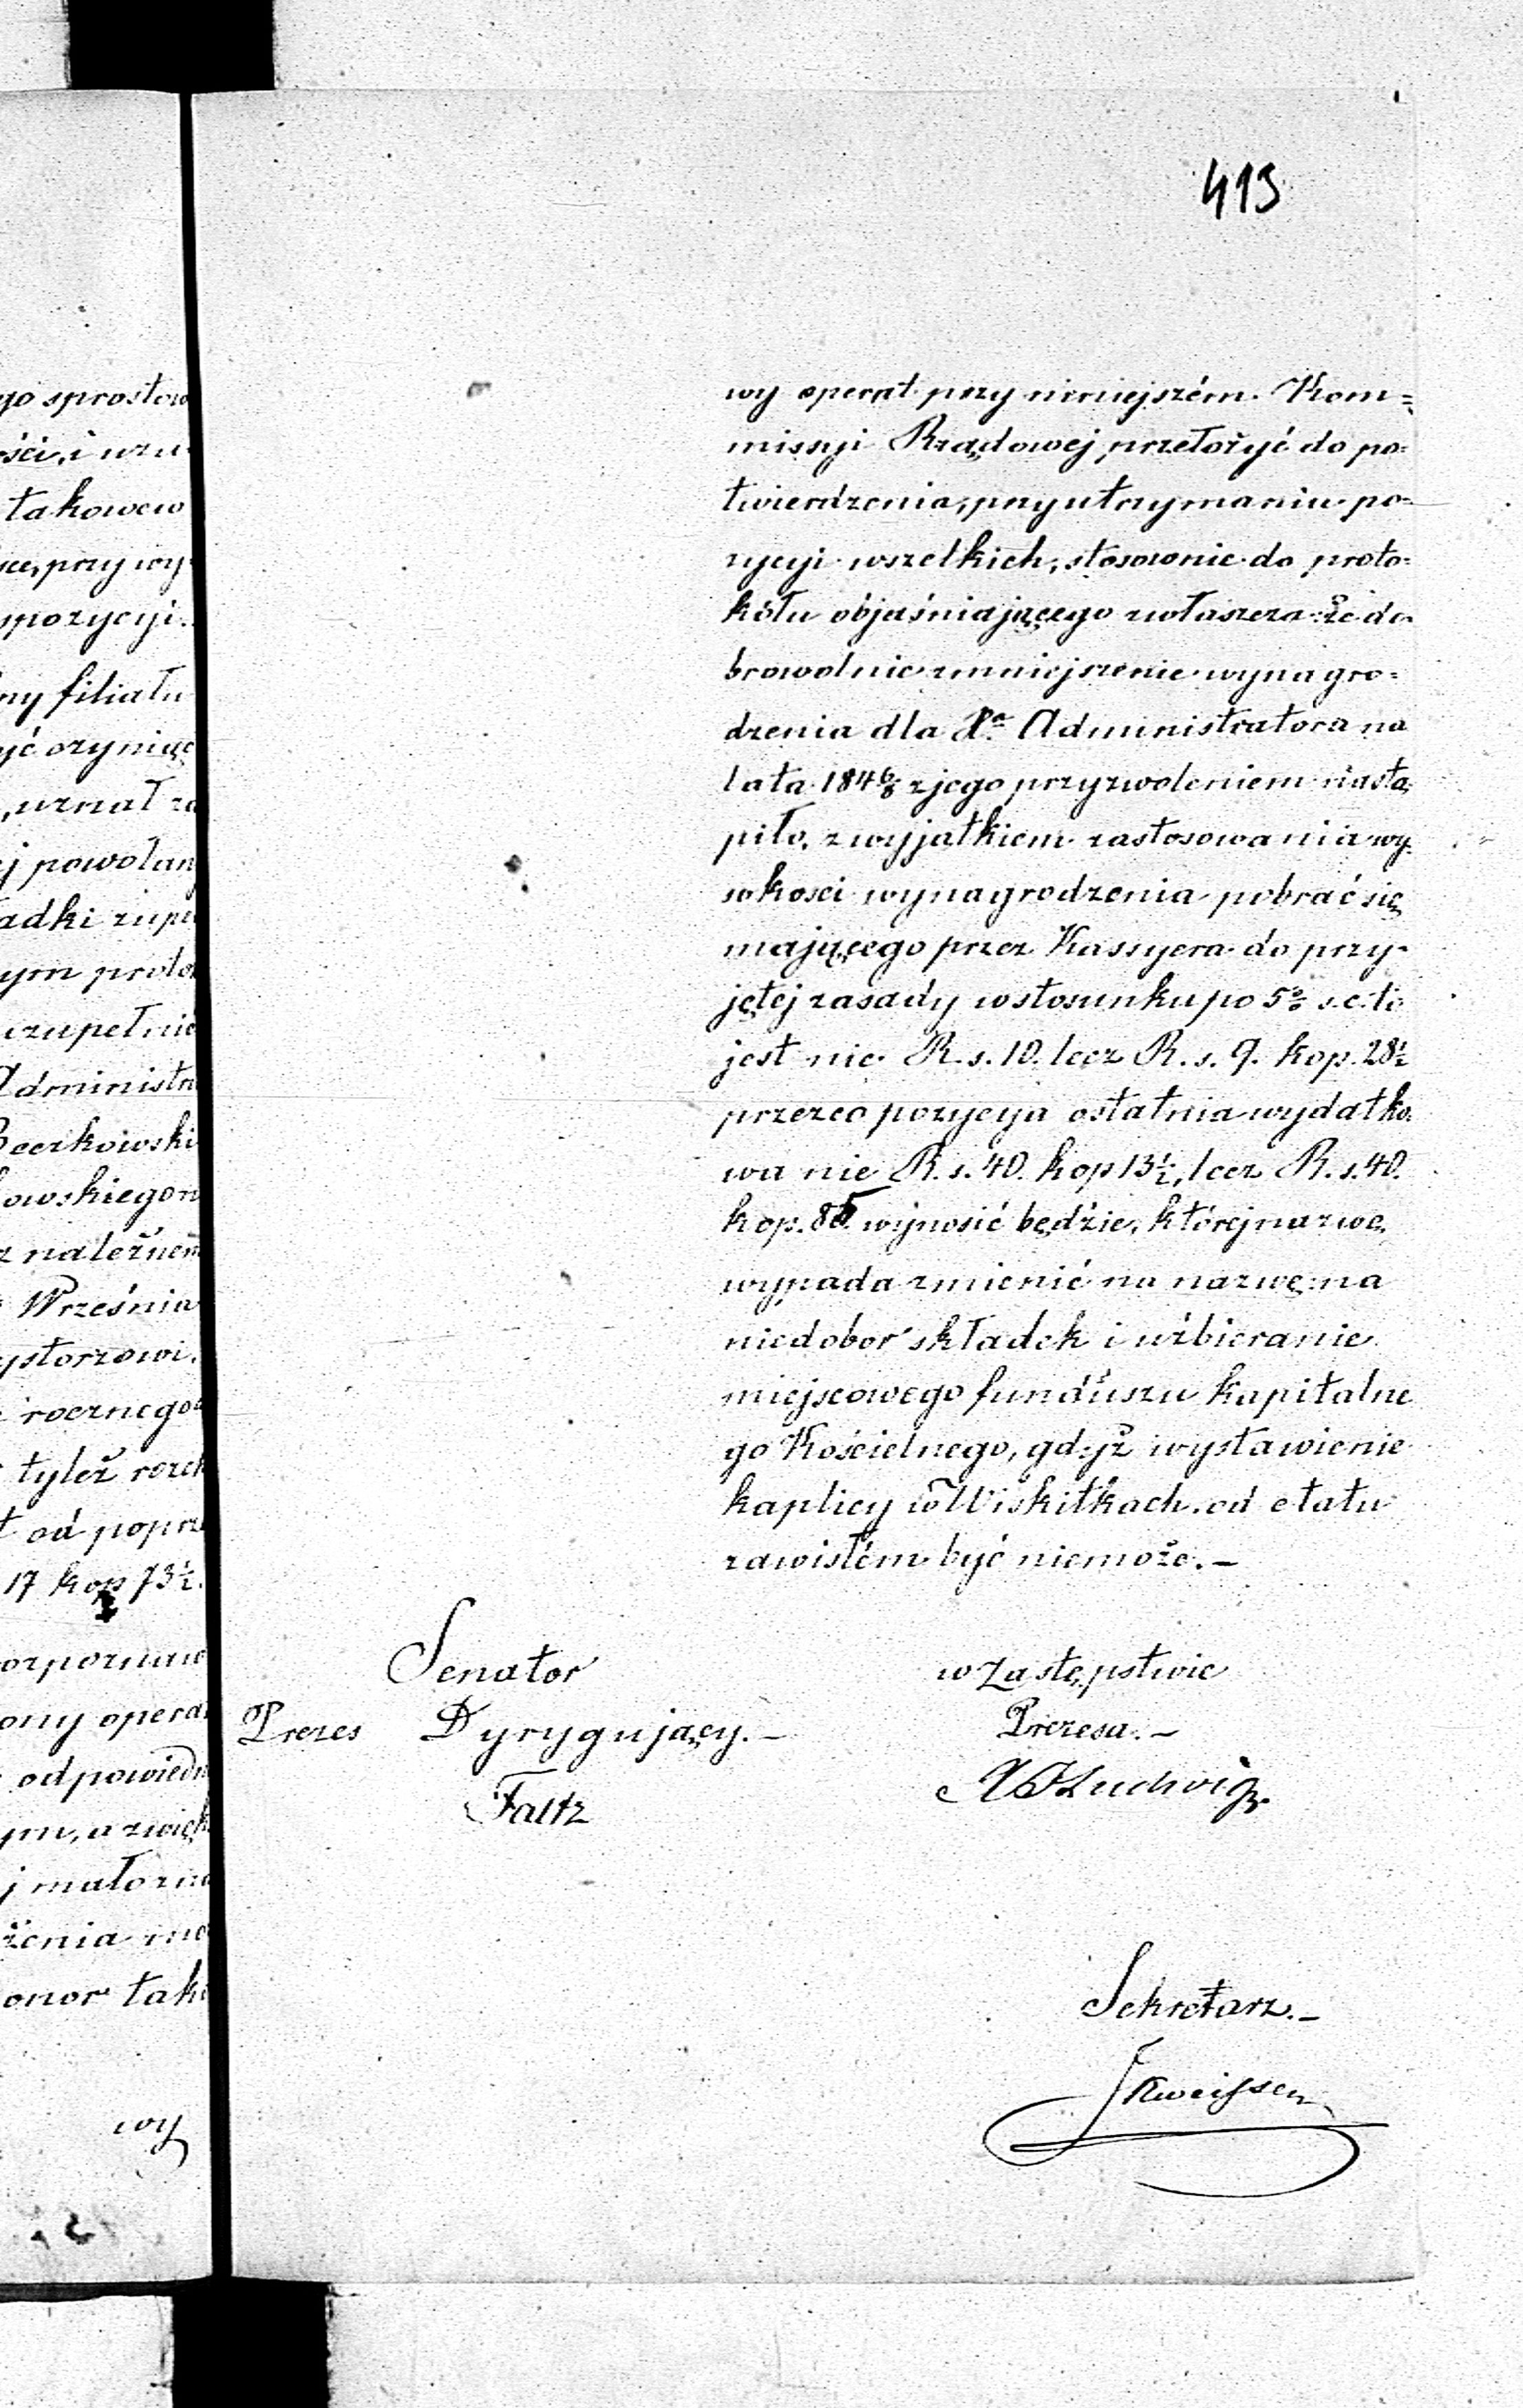 413
go sprostow
ści, i wzu
takowe w
sce, przy wy
pozycyi.
ny filiału
yć czyniąc
, uznał za
j powołan
adki zupe
ym proto
uzupełnie
Administra
Beerkowski
owskiego n
z należnem
Września
ystorzowi.
rocznego
tyleż rozch
t od poprz
17 kop 73½.
ozpoznaw
ony opera
odpowiedn
ym, a zwięk
j mało zna
żenia mo
onor taki
wy
wy operat przy niniejszém Kom=
missyi Rządowej przełożyć do po=
twierdzenia, przy utrzymaniu po=
zycyi wszelkich, stosownie do proto=
kółu objaśniającego zwłaszcza że do
browolnie zmniejszenie wynagro=
dzenia dla Xa Administratora na
lata 1846/8 z jego przyzwoleniem nastą
piło, z wyjątkiem zastosowania wy
sokosci wynagrodzenia pobrać się
mającego przez Kassyera do przy
jętej zasady w stosunku po 5% s.c. to
jest nie R.s. 10. lecz R.s. 9. kop. 28½
przezco pozycya ostatnia wydatko
wa nie R.s. 40. kop 13½, lecz R.s. 40.
kop. 85 wynosić będzie, której nazwę
wypada zmienić na nazwę: na
niedobor składek i uzbieranie
miejscowego funduszu kapitalne
go Kościelnego, gdyż wystawienie
kaplicy w Wiskitkach od etatu
zawistém być niemoże.—
Senator
Prezes Dyrygujący.—
Faltz
w Zastępstwie
Prezesa.—
Ludwig
Sekretarz.—